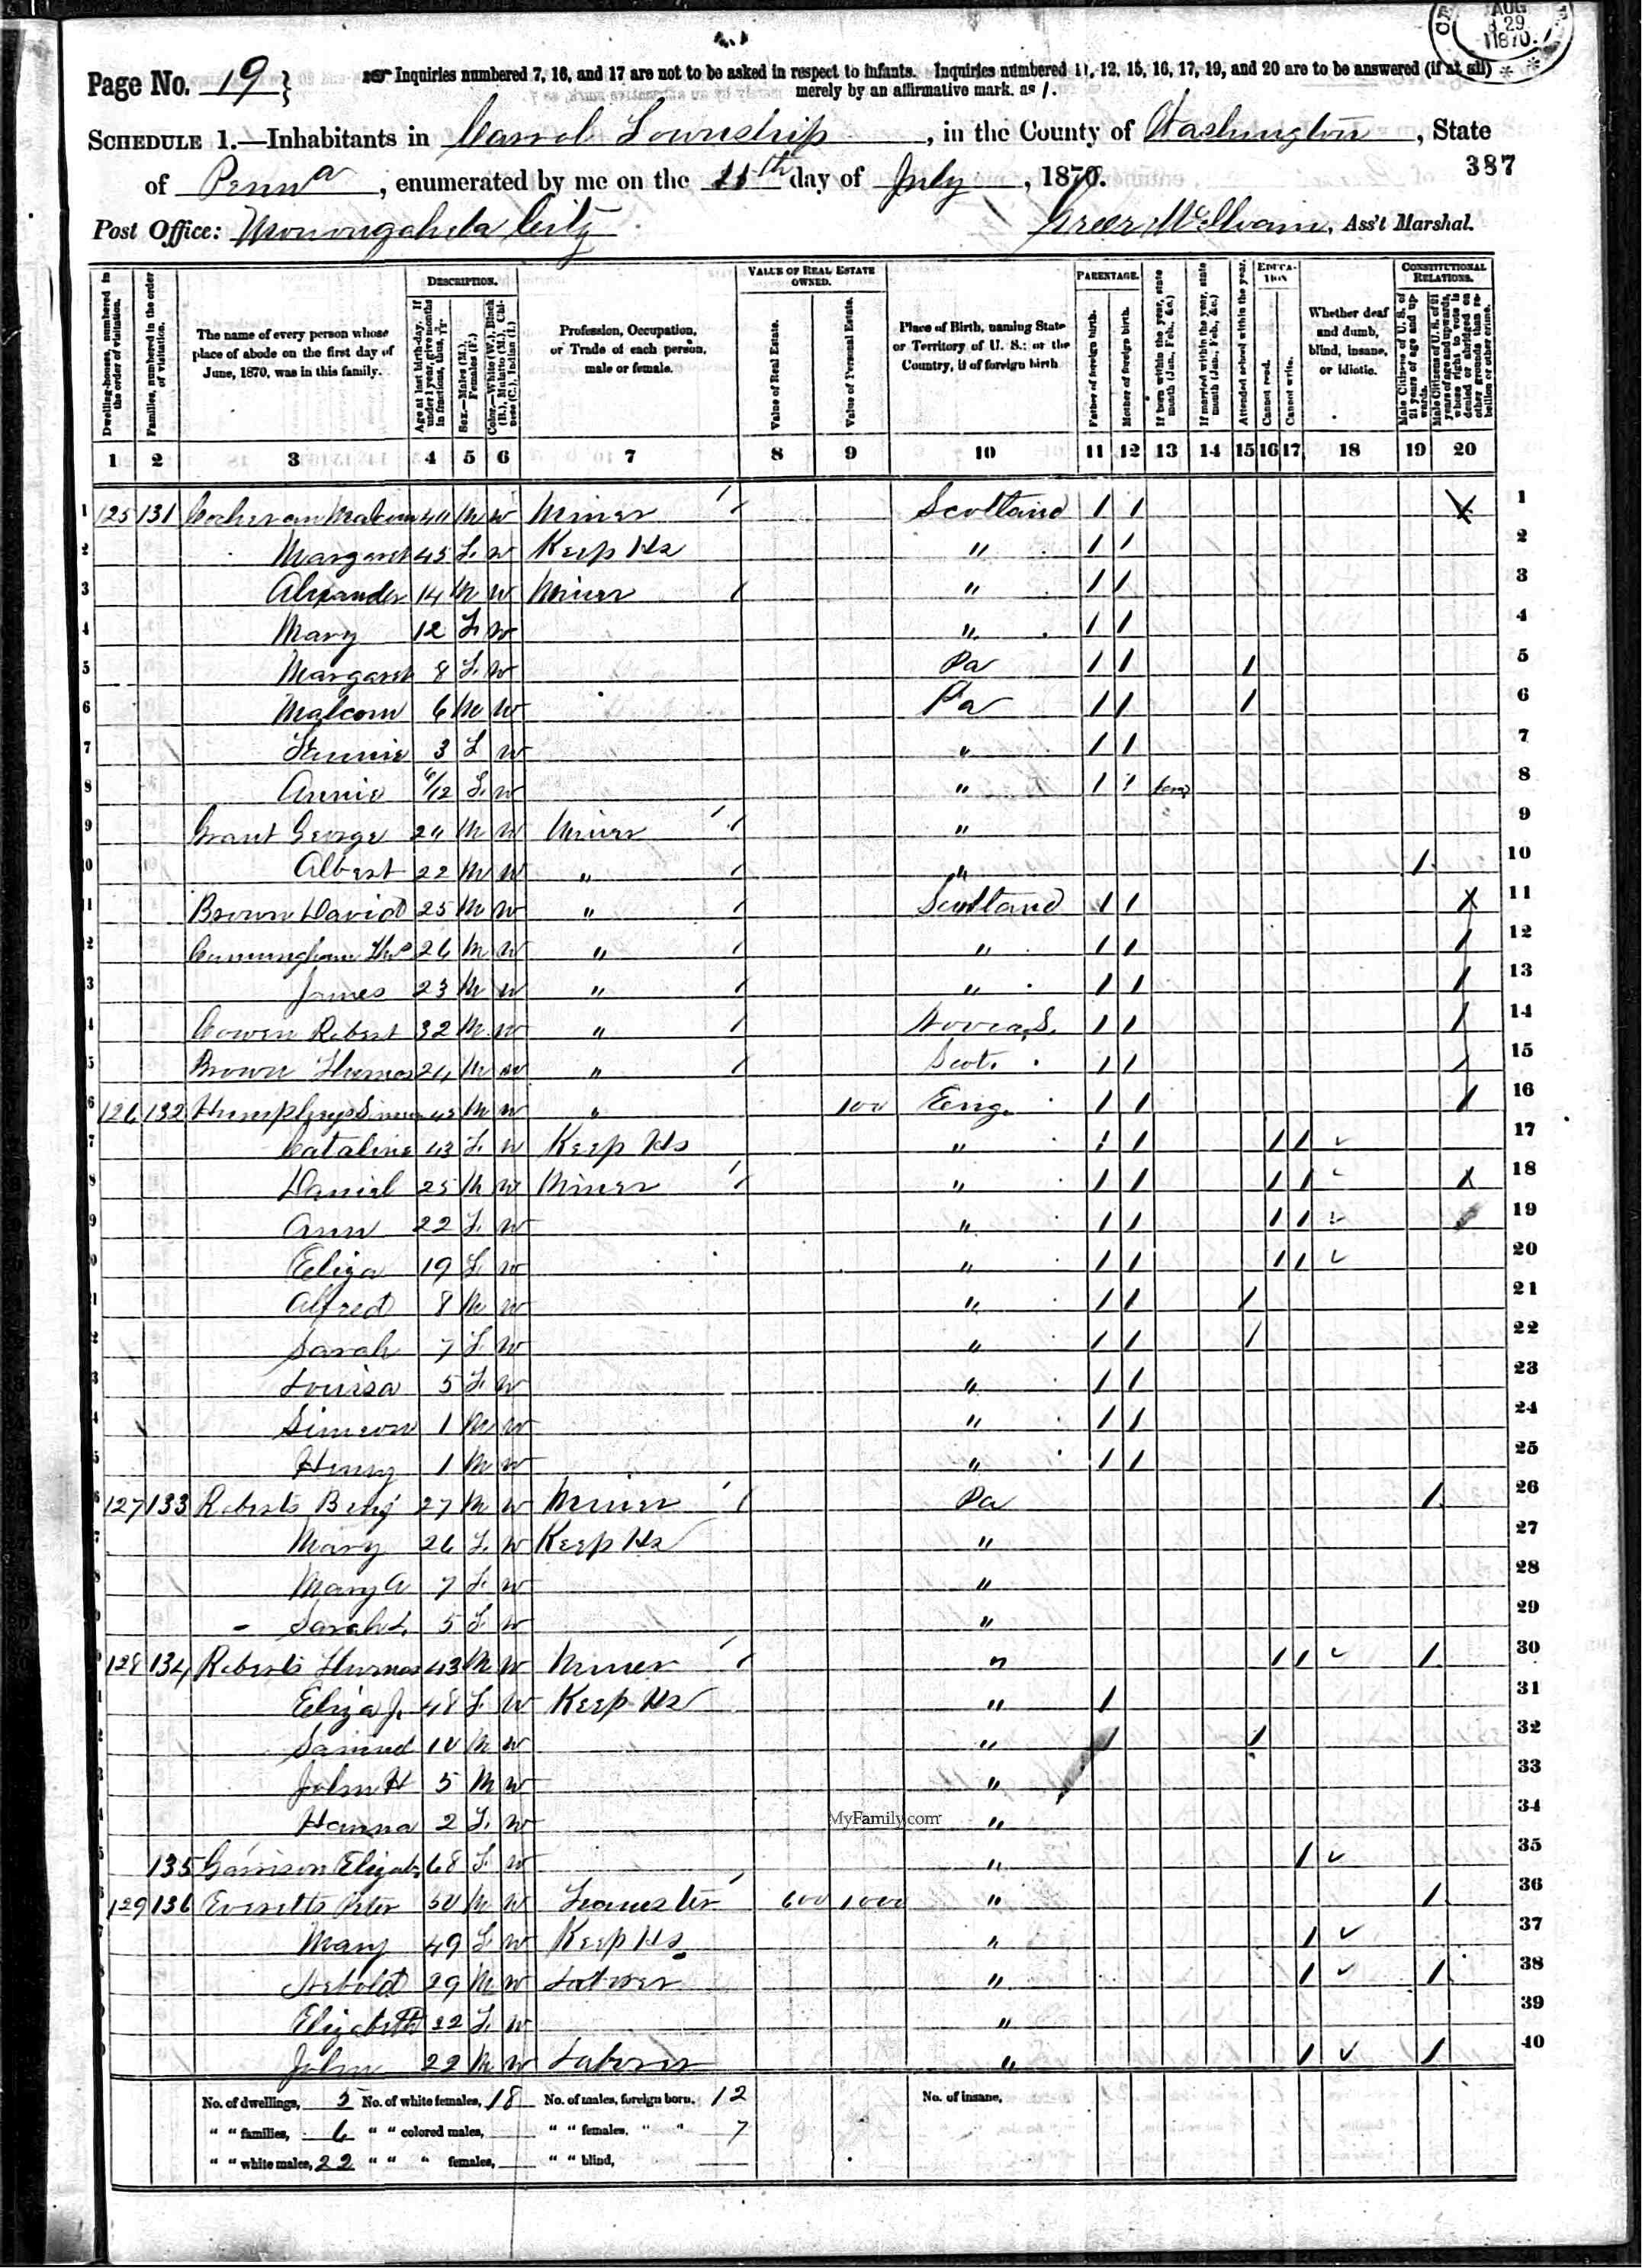 AUG
29
1870.
Page No. 19 } Inquiries numbered 7, 16, and 17 are not to be asked in respect to infants. Inquiries numbered 11, 12, 15, 16, 17, 19, and 20 are to be answered (if at all)
merely by an affirmative mark, as /.
SCHEDULE 1.—Inhabitants in Carrol Township, in the County of Washington, State
387
of Penna, enumerated by me on the th day of July, 1870.
Post Office: Monongahela City Greer McIlvain, Ass't Marshal.
DESCRIPTION. VALUE OF REAL ESTATE OWNED. PARENTAGE. EDUCATION CONSTITUTIONAL RELATIONS.
Dwelling-houses, numbered in the order of visitation.
Families, numbered in the order of visitation.
The name of every person whose place of abode on the first day of June, 1870, was in this family.
Age at last birth-day. If under 1 year, give months in fractions, thus,
Sex.—Males (M.), Females (F.)
Color.—White (W.), Black (B.), Mulatto (M.), Chinese (C.), Indian (I.)
Profession, Occupation, or Trade of each person, male or female.
Value of Real Estate.
Value of Personal Estate.
Place of Birth, naming State or Territory of U. S.; or the Country, if of foreign birth
Father of foreign birth.
Mother of foreign birth.
If born within the year, state month (Jan., Feb., &c.)
If married within the year, state month (Jan., Feb., &c.)
Attended school within the year.
Cannot read.
Cannot write.
Whether deaf and dumb, blind, insane, or idiotic.
Male Citizens of U. S. of 21 years of age and upwards.
Male Citizens of U. S. of 21 years of age and upwards, whose right to vote is denied or abridged on other grounds than rebellion or other crime.
1 2 3 4 5 6 7 8 9 10 11 12 13 14 15 16 17 18 19 20
1 125 131 M W Miner / Scotland / / X 1
2 Margaret 45 F. W Keep Hs " / / 2
3 Alexander 14 M W Miner / " / / 3
4 Mary 12 F. W " / / 4
5 Margaret 8 F. W Pa / / / 5
6 Malcom 6 M W Pa / / / 6
7 3 F W " / / 7
8 Annie 6/12 F. W " / / 8
9 Grant George M W Miner / " 9
10 Albert 22 M W " / " / 10
11 Brown David 25 M W " / Scotland / / X 11
12 Cunningham Thos 26 M W " / " / / / 12
13 James 23 M W " / " / / / 13
14 Cowen Robert 32 M W " / Nova S. / / / 14
15 Brown Thomas 24 M W " / Scot. / / / 15
16 126 132 Humphrys M W " 100 Eng. / / / 16
17 Cataline 43 F. W Keep Hs " / / / / ✓ 17
18 Daniel 25 M W Miner / " / / / / ✓ X 18
19 Ann 22 F. W " / / / / ✓ 19
20 Eliza 19 F. W " / / / / ✓ 20
21 Alfred 8 M W " / / / 21
22 Sarah 7 F W " / / / 22
23 Louisa 5 F. W " / / 23
24 Simeon 1 M W " / / 24
25 Henry 1 M W " / / 25
26 127 133 Roberts Benj 27 M W Miner / Pa / 26
27 Mary 26 F. W Keep Hs " 27
28 Mary A 7 F. W " 28
29 Sarah L. 5 F. W " 29
30 128 134 Roberts Thomas 43 M W Miner / " / / ✓ / 30
31 Eliza J. 48 F. W Keep Hs " / 31
32 Samuel 10 M W " / / 32
33 John H 5 M W " 33
34 Hanna 2 F. W " 34
MyFamily.com
35 135 Garrison Elizab. 68 F. W " / ✓ 35
36 129 136 Everetts Peter 50 M W Teamster 600 1000 " / 36
37 Mary 49 F. W Keep Hs " / ✓ 37
38 29 M W Laborer " / ✓ / 38
39 Elizabeth 22 F. W " 39
40 John 22 M W Laborer " / ✓ / 40
No. of dwellings, 5 No. of white females, 18 No. of males, foreign born, 12 No. of insane,
" " families, 6 " " colored males, " " females, " " 7
" " white males, 22 " " " females, " " blind,